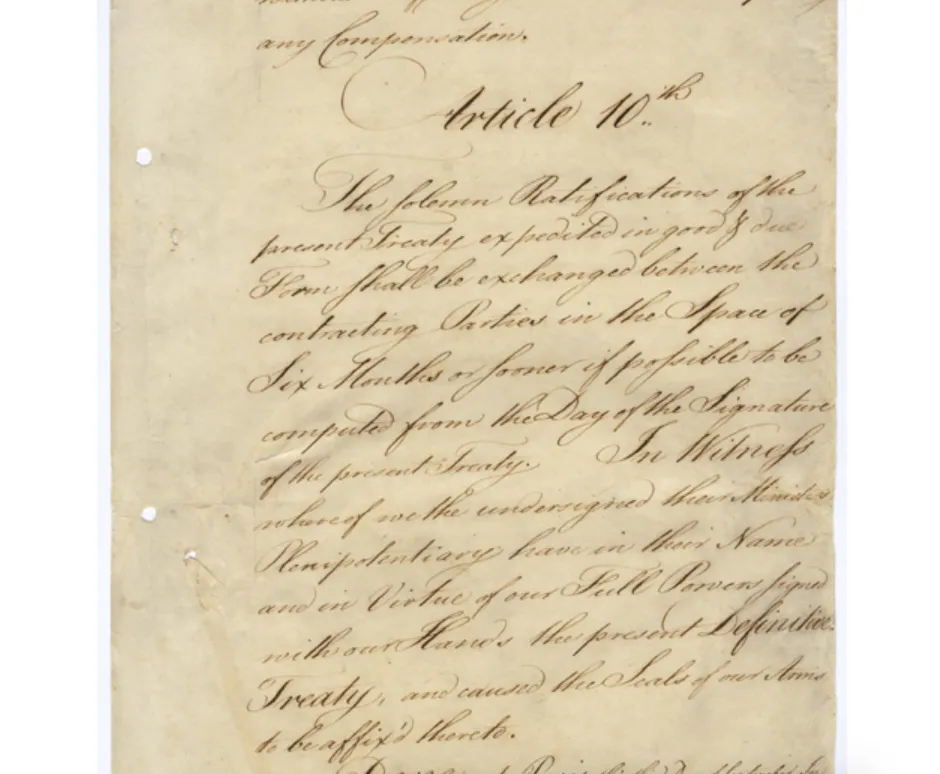 any Compensation.
Article 10.th
The solemn Ratifications of the
present Treaty expedited in good & due
Form shall be exchanged between the
contracting Parties in the Space of
Six Months or sooner if possible to be
computed from the Day of the Signature
of the present Treaty. In Witness
whereof we the undersigned their Ministers
Plenipotentiary have in their Name
and in Virtue of our Full Powers signed
with our Hands the present Definitive
Treaty, and caused the Seals of our Arms
to be affix'd thereto.